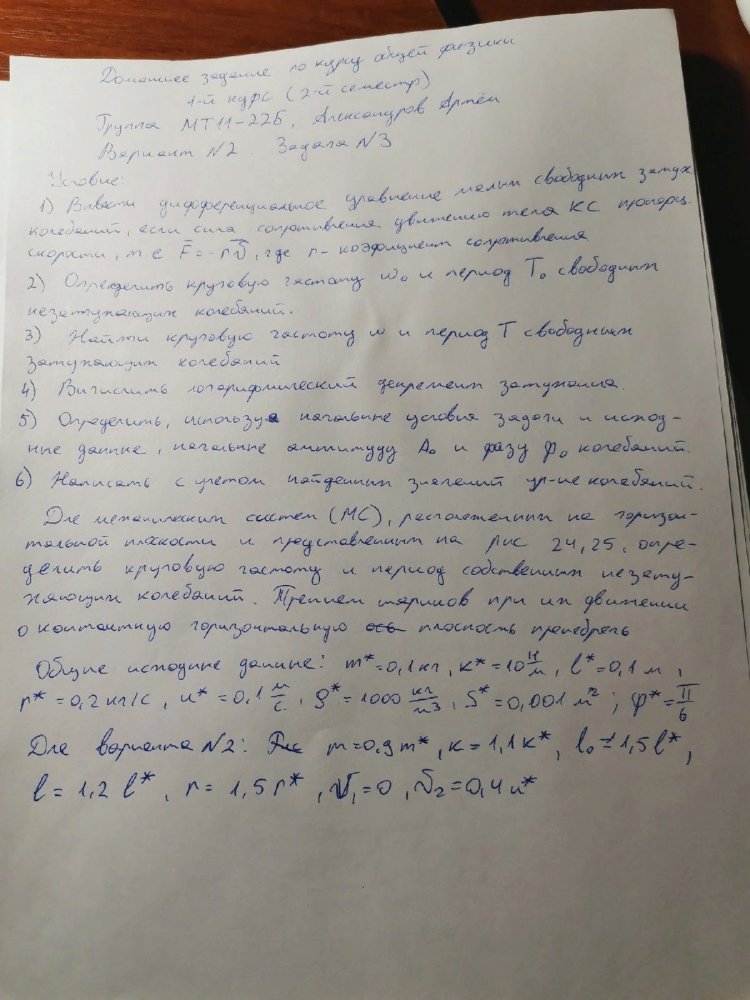 Домашнее задание по курсу общей физики
1-й курс (2-й семестр)
Группа МТ11-22Б, Александров Артём
Вариант N2. Задача N3
Условие:
1) Вывести дифференциальное уравнение малых свободных затух.
колебаний, если сила сопротивления движению тела КС пропорц.
скорости, т.е F̄ = -rv̄, где r - коэфициент сопротивления
2) Определить круговую частоту ω₀ и период T₀ свободных
незатухающих колебаний.
3) Найти круговую частоту ω и период T свободных
затухающих колебаний
4) Вычислить логарифмический декремент затухания.
5) Определить, используя начальные условия задачи и исход-
ные данные, начальные амплитуду A₀ и фазу φ₀ колебаний.
6) Написать с учетом найденных значений ур-ие колебаний.
Для механических систем (МС), расположенных на горизон-
тальной плоскости и представленных на рис 24, 25, опре-
делить круговую частоту и период собственных незату-
хающих колебаний. Трением шариков при их движении
о контактную горизонтальную плоскость пренебречь
Общие исходные данные: m* = 0,1 кг, к* = 10 Н/м, l* = 0,1 м,
r* = 0,2 кг/с, u* = 0,1 м/с, ρ* = 1000 кг/м3, S* = 0,001 м²; φ* = π/6
Для варианта N2: m = 0,9 m*, к = 1,1 к*, l₀ = 1,5 l*,
l = 1,2 l*, r = 1,5 r*, v₁ = 0, v₂ = 0,4 u*